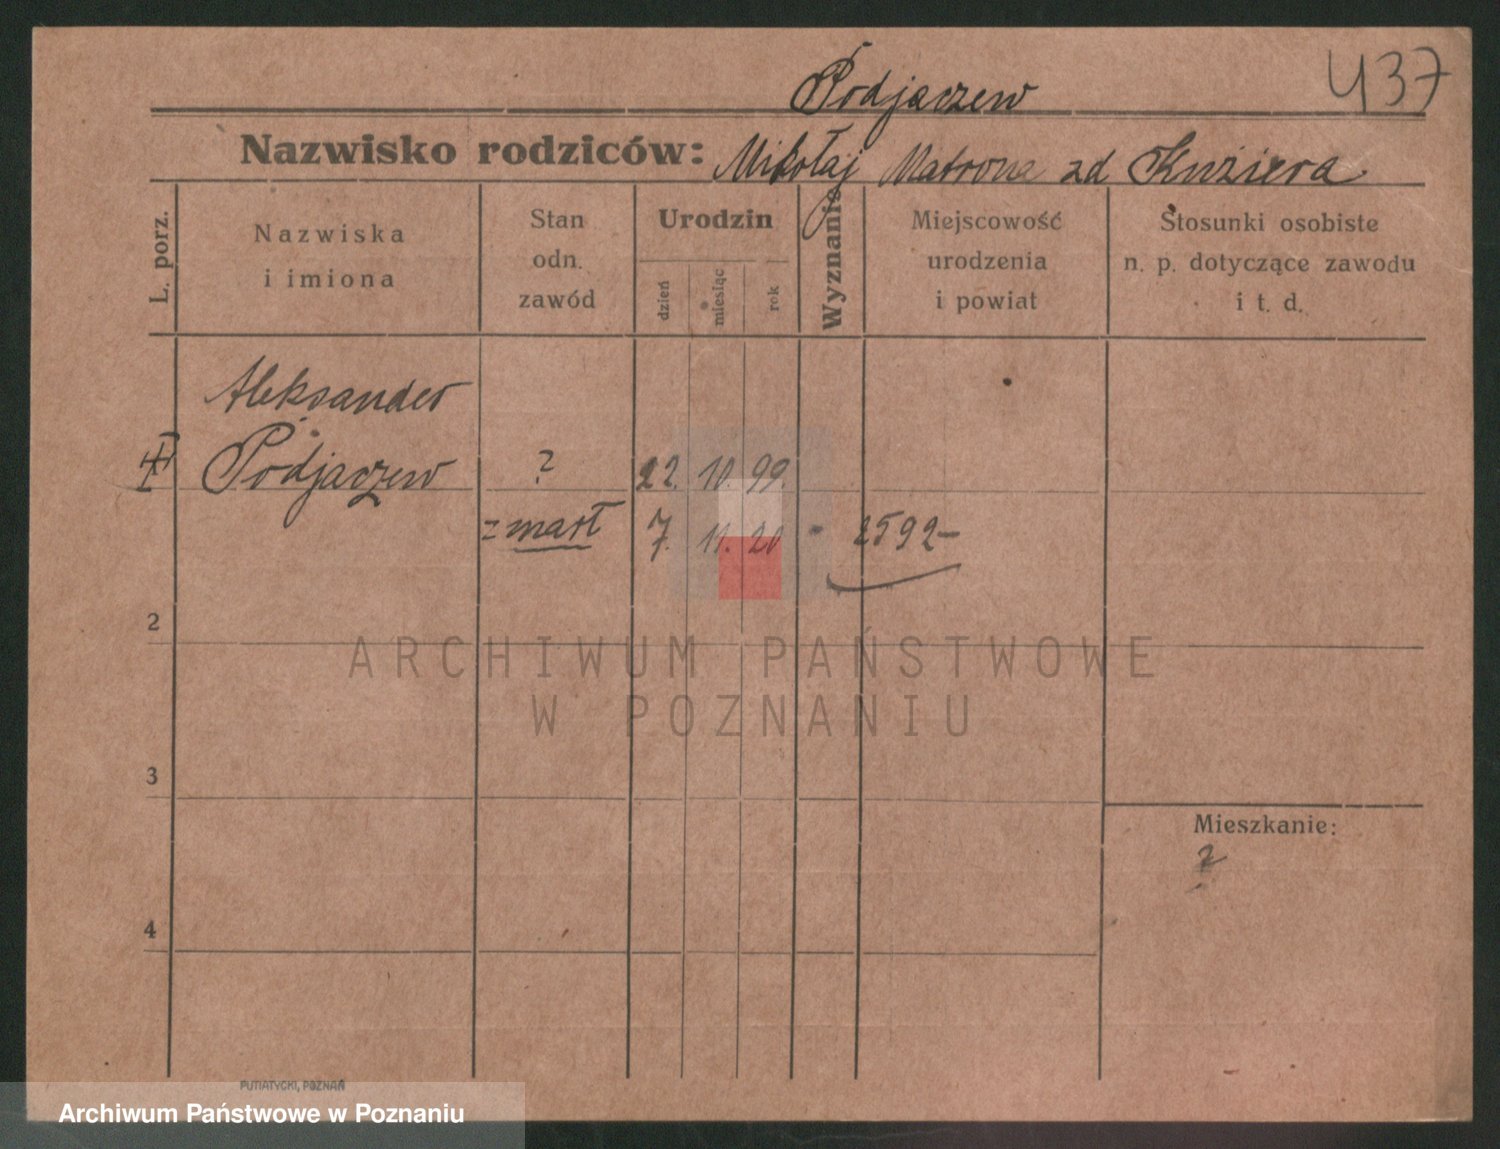 437
Podjaczew
Nazwisko rodziców: Mikołaj Matrona zd Kuziera
L. porz.
Nazwiska
i imiona
Stan
odn.
zawód
Urodzin
dzień
miesiąc
rok
Wyznanie
Miejscowość
urodzenia
i powiat
Stosunki osobiste
n. p. dotyczące zawodu
i t. d.
Aleksander
Podjaczew ? 22. 10. 99.
zmarł 7. 11. 20 - 2592-
2
ARCHIWUM PAŃSTWOWE
W POZNANIU
3
Mieszkanie:
?
4
PUTIATYCKI, POZNAŃ
Archiwum Państwowe w Poznaniu